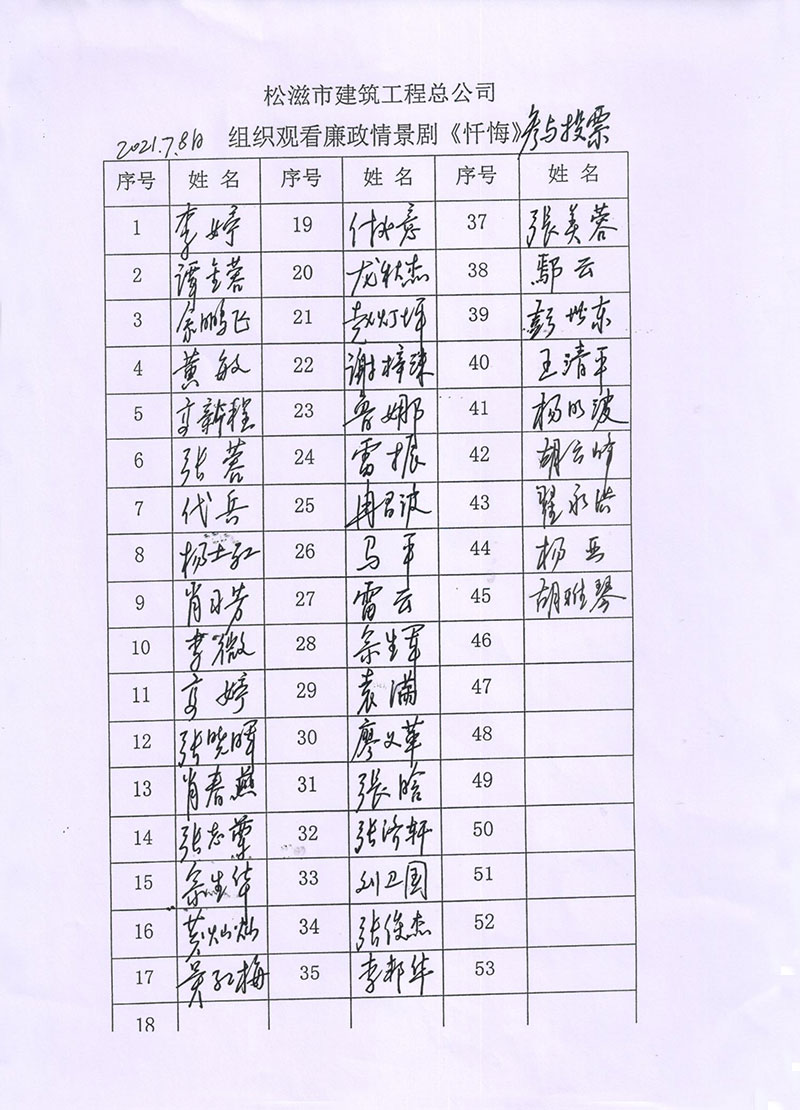 松滋市建筑工程总公司
2021.7.8日 组织观看廉政情景剧《忏悔》参与投票
序号 姓 名 序号 姓 名 序号 姓 名
1 李婷 19 付必意 37 張美蓉
2 谭金蓉 20 龙秋杰 38 鄢云
3 余鹏飞 21 灯坪 39 彭世东
4 黄敏 22 谢梓珠 40 王清平
5 新程 23 鲁娜 41 杨明波
6 张蓉 24 雷振 42 胡云峰
7 代兵 25 冉君波 43 翟永洪
8 杨士红 26 马平 44 杨亚
9 肖日芳 27 雷云 45 胡雅琴
10 李微 28 余生军 46
11 婷 29 袁满 47
12 张晓晖 30 廖文革 48
13 肖春燕 31 張晗 49
14 张志 32 张济轩 50
15 余生华 33 刘卫国 51
16 黄灿灿 34 张俊杰 52
17 吴红梅 35 李邦华 53
18